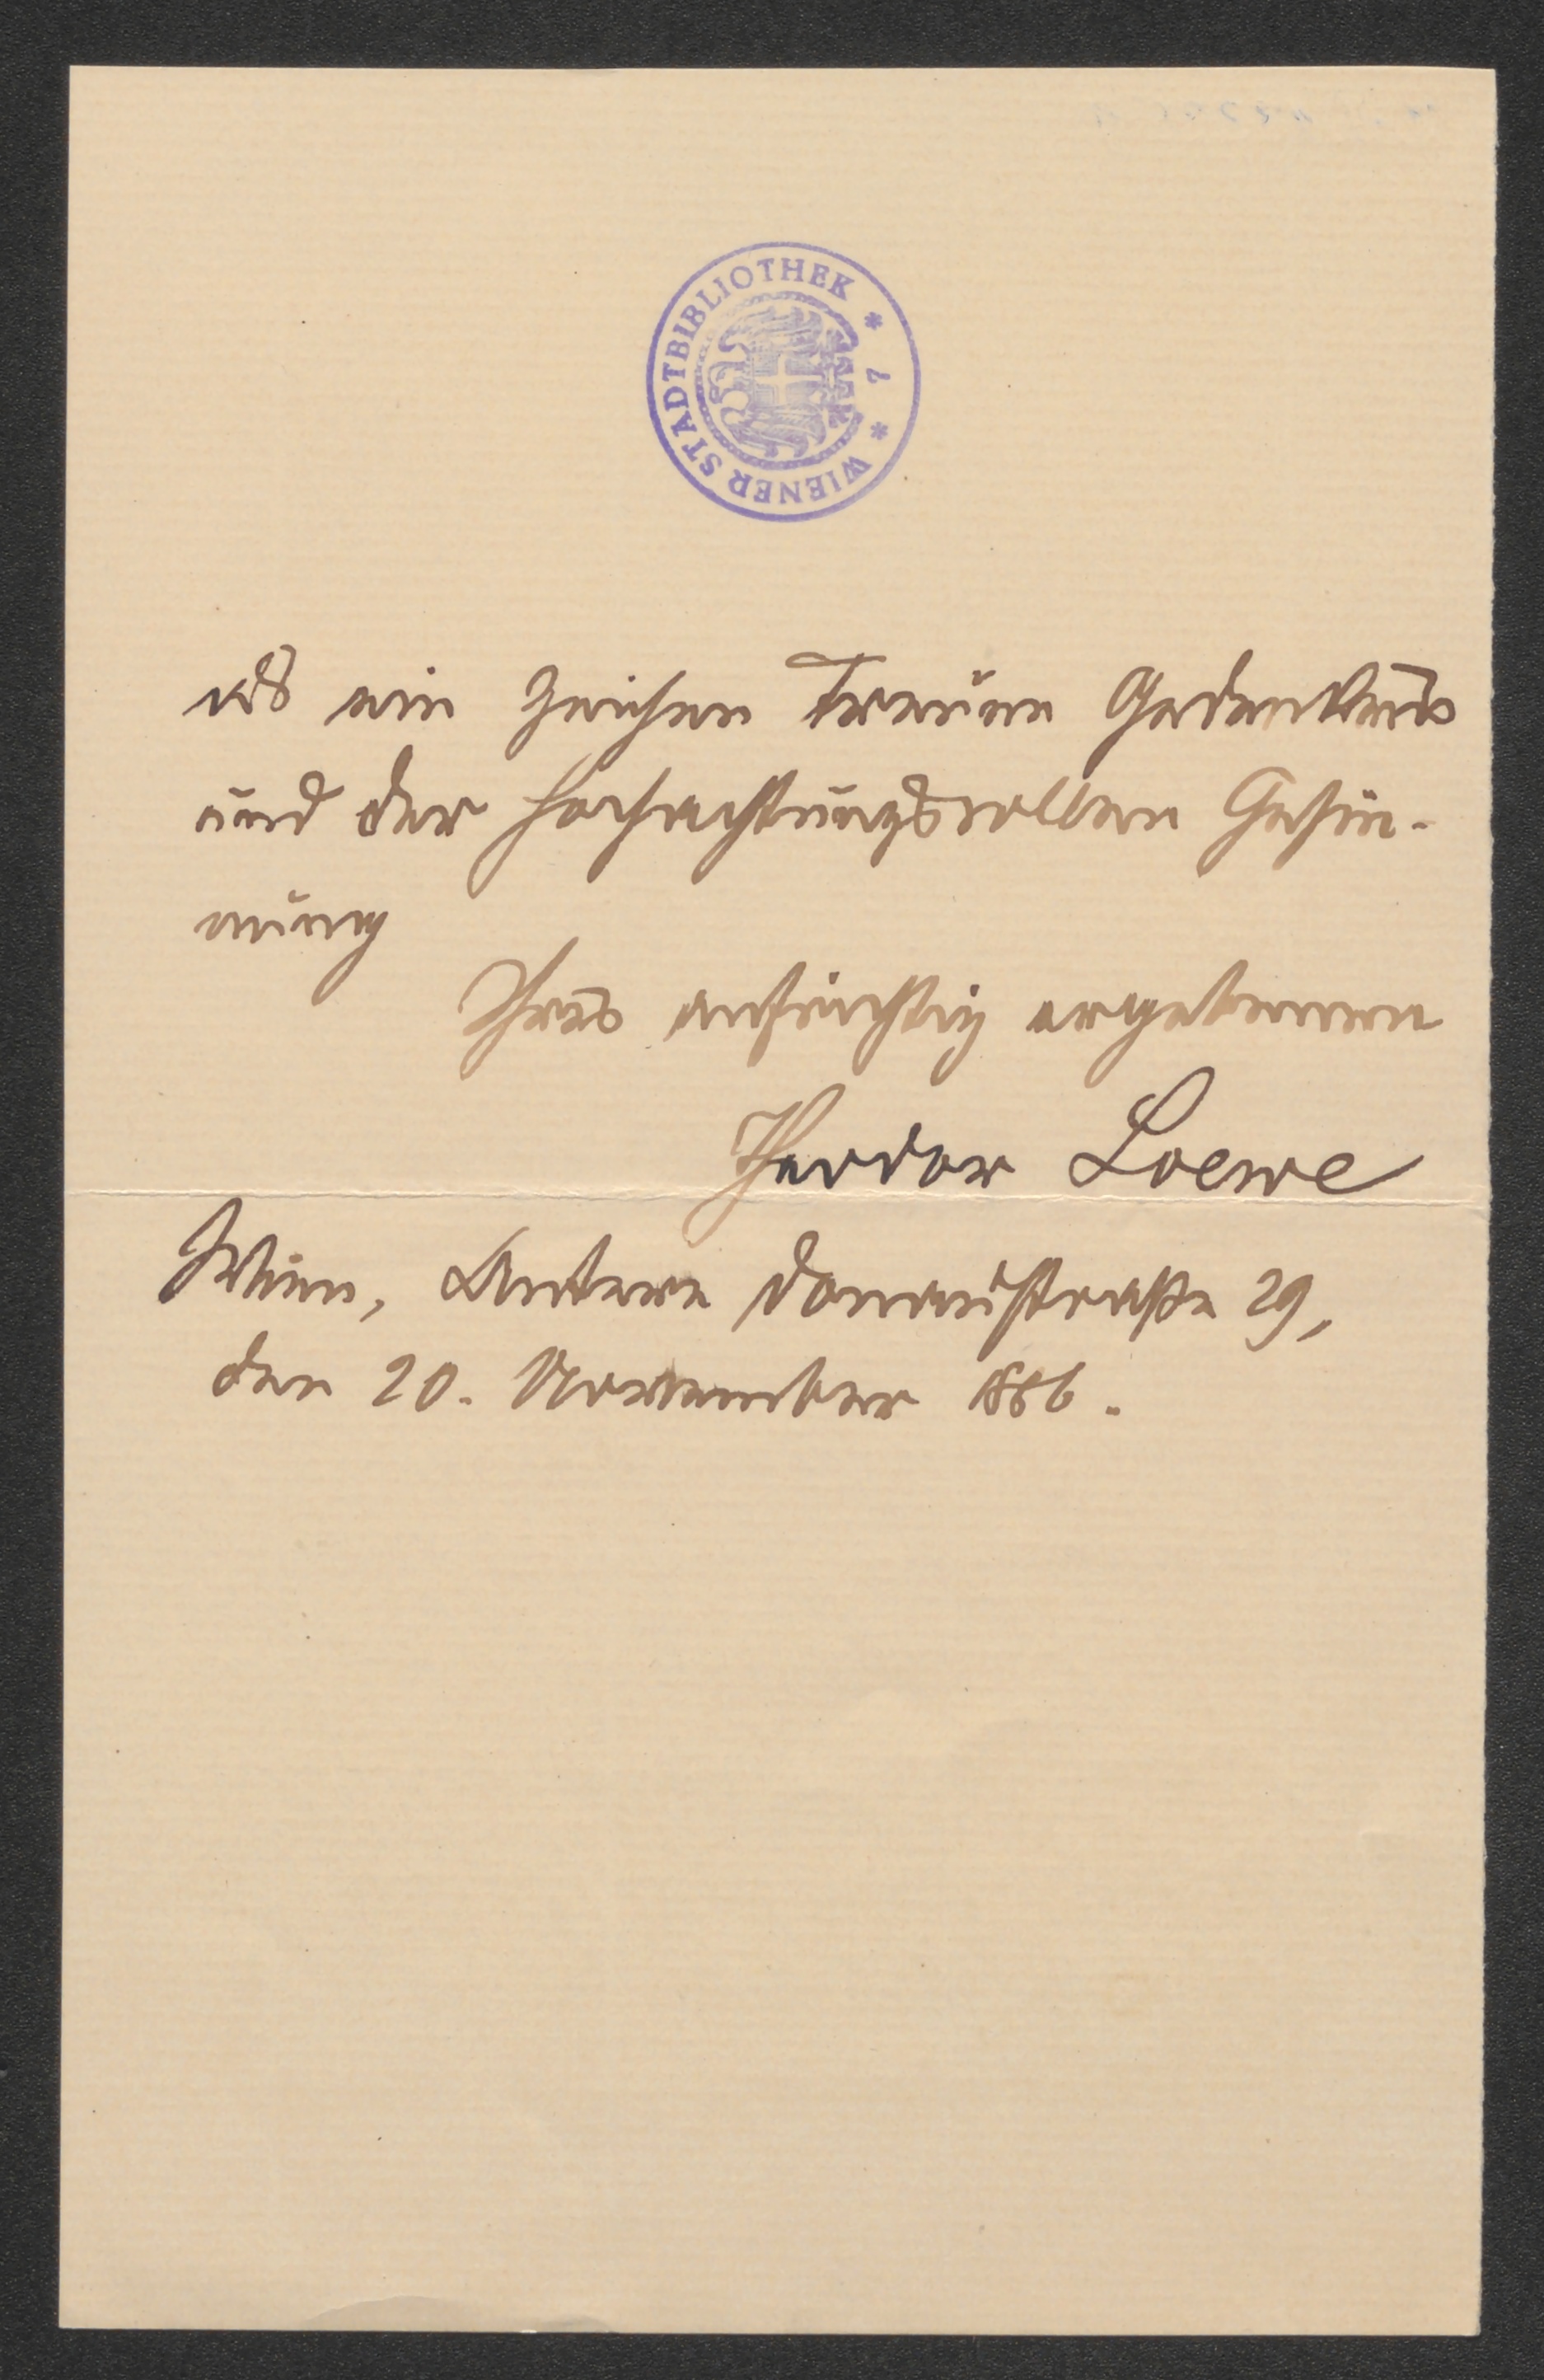 WIENER STADTBIBLIOTHEK * 7 *
als ein Zeichen treuen Gedenkens
und der hochachtungsvollen Gesin-
nung
Ihres aufrichtig ergebenen
Theodor Loewe
Wien, Untere Donaustraße 29,
den 20. November 1886.